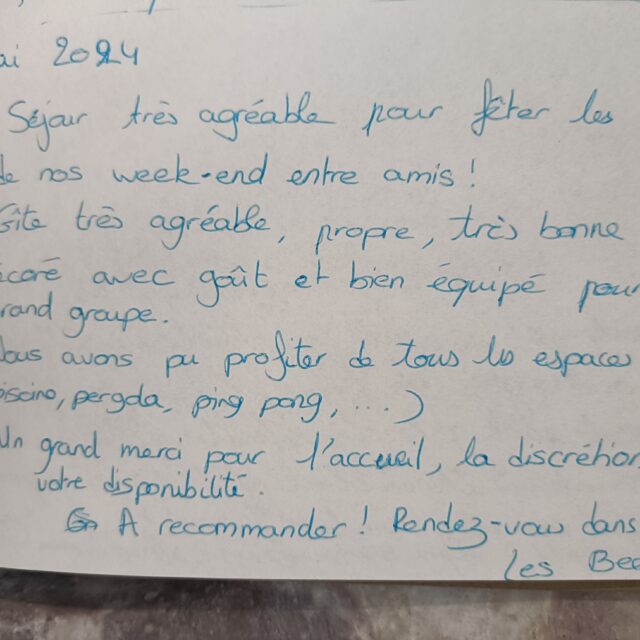 ai 2024
Séjour très agréable pour fêter les
de nos week-end entre amis !
Gîte très agréable, propre, très bonne
écoré avec goût et bien équipé pour
rand groupe.
Nous avons pu profiter de tous les espaces
piscine, pergola, ping pong, ....)
Un grand merci pour l'accueil, la discrétion
votre disponibilité.
A recommander ! Rendez-vous dans
les Bea